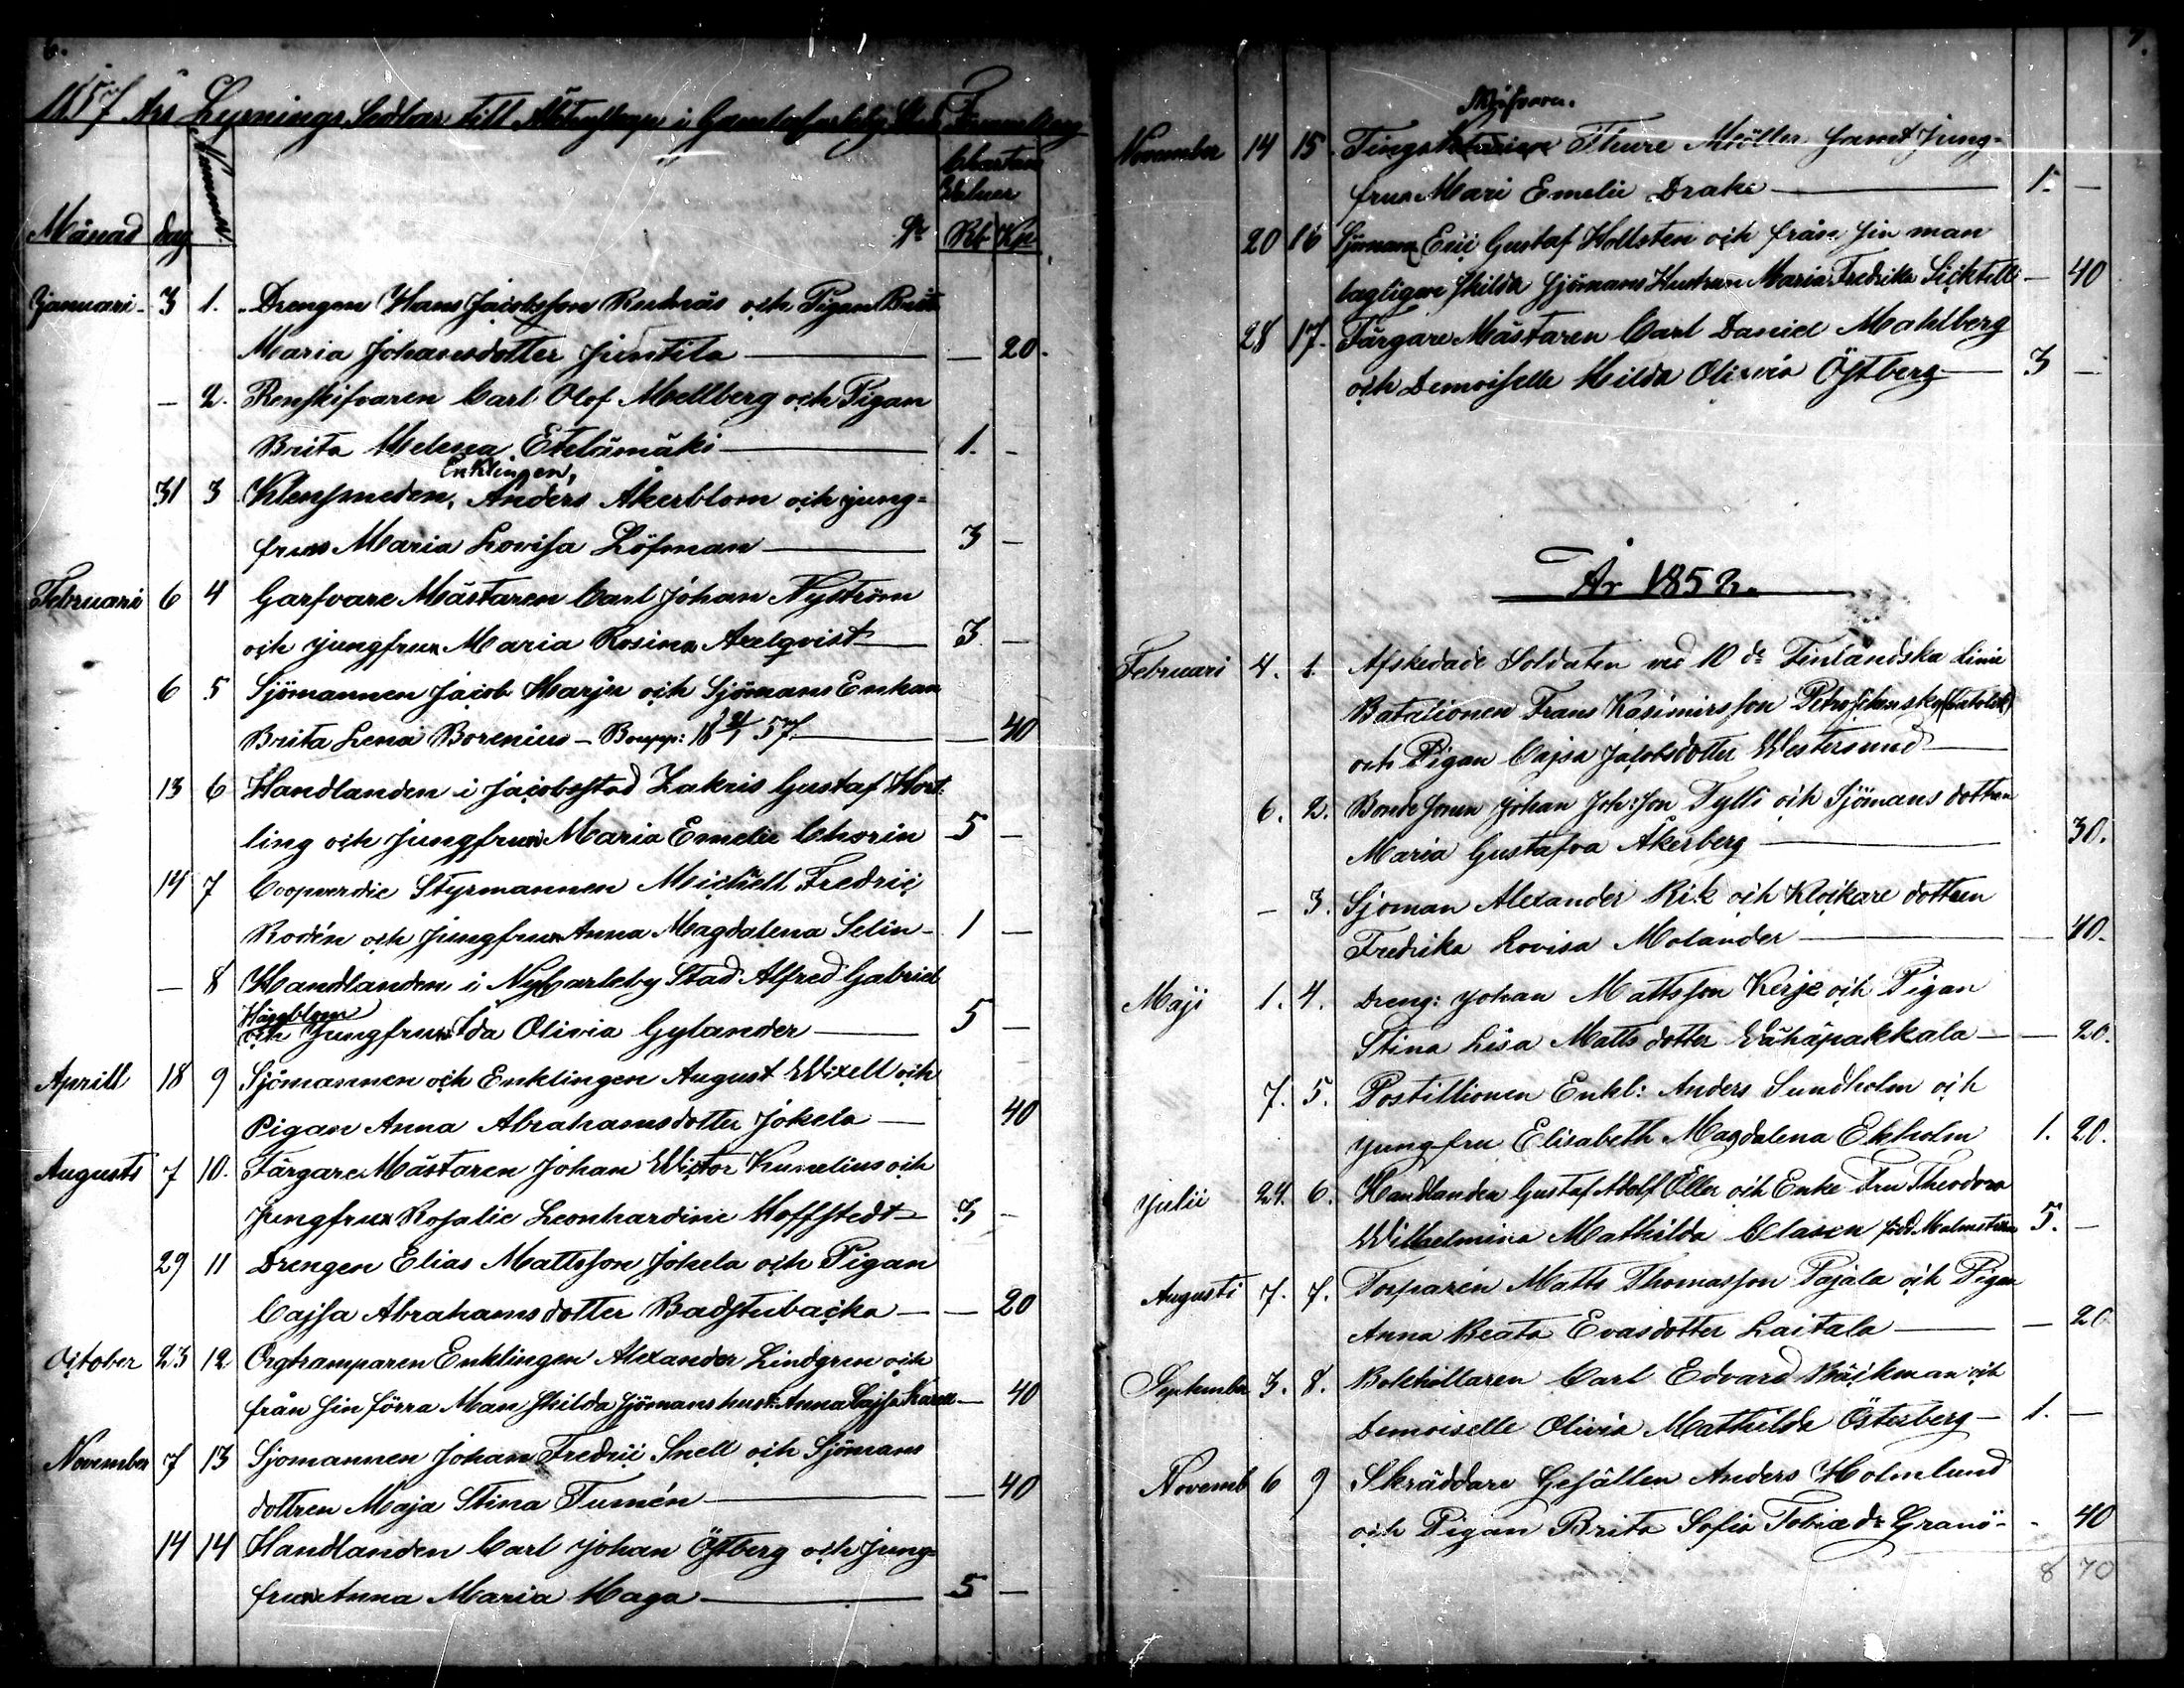 6.
1857 Års Lysnings Sedlar till Äktenskap i Gamlakarleby Stads Församling
Månad dag Nummer. Chartæ Walner Rb Kp
Januari 3 1. Drengen Hans Jacobsson Rudnäs och Pigan Brita
Maria Johansdotter Juntila — 20.
— 2. Renskifvaren Carl Olof Mellberg och Pigan
Brita Helena Etelämäki 1. -
Enklingen,
31 3 Klensmeden, Anders Åkerblom och jung=
frun Maria Lovisa Löfman 3 -
Februari 6 4 Garfvare Mästaren Carl Johan Nyström
och jungfrun Maria Rosina Axelqvist 3. —
6 5 Sjömannen Jacob Harju och Sjömans Enkan
Brita Lena Borenius — 18 21/1 57. — 40
13 6 Handlanden i Jacobstad Zakris Gustaf Hort-
ling och Jungfrun Maria Emelie Chorin 5 —
14 7 Coopverdie Styrmannen Michell Fredric
Rodén och Jungfrun Anna Magdalena Selin 1 —
— 8 Handlanden i NyCarleby Stad Alfred Gabriel
Häggblom
och Jungfrun Ida Olivia Gylander 5 —
Aprill 18 9 Sjömannen och Enklingen August Wixell och
Pigan Anna Abrahamsdotter Jokela — 40
Augusti 7 10. Färgare Mästaren Johan Wictor Kumelius och
Jungfrun Rosalie Leonhardine Hoffstedt 3 -
29 11 Drengen Elias Mattsson Jokela och Pigan
Cajsa Abrahamsdotter Badstubacka — 20
October 23 12 Orgtramparen Enklingen Alexander Lindgren och
från sin förra Man skilda sjömans hust: Anna Cajsa — 40
November 7 13 Sjomannen Johan Fredric Snell och Sjömans
dottren Maja Stina Tumén — 40
14 14 Handlanden Carl Johan Östberg och Jung=
frun Anna Maria Haga 5 —
7.
November 14 15. Tings Thure Möller samt Jung=
frun Mari Emelie Drake 1. —
20 16 Sjöman Eric Gustaf Hollsten och från sin man
lagligen skilda sjömans Hustrun Maria Fredrika — 40
28 17. Färgare Mästaren Carl Daniel Mahlberg
och Demoiselle Hilda Olivia Östberg 3 —
År 1858.
Februari 4. 1. Afskedade Soldaten vid 10de Finlandska Linie
Batalionen Frans Kasimirsson (Catolik)
och Pigan Cajsa Jacobsdotter Westersund
6. 2. Bonde Sonen Johan Joh:son Tylli och Sjömans dottren
Maria Gustafva Åkerberg 30.
— 3. Sjoman Alexander Rik och Klockare dottren
Fredrika Lovisa Molander — 40.
Maji 1. 4. Dreng: Johan Mattsson Kerje och Pigan
Stina Lisa Matts dotter Wähäpakkala — 20.
7. 5. Postillionen Enkl: Anders Sundholm och
Jungfru Elisabeth Magdalena Ekholm 1. 20.
Julii 24. 6. Handlanden Gustaf Adolf Öller och Enke Fru Theodora
Wilhelmina Mathilda Clasen född Malmström 5. —
Augusti 7. 7. Torparen Matts Thomasson Pajala och Pigan
Anna Beata Evasdotter Laitala — 20
September 3. 8. Bokhållaren Carl Edvard Bäckman och
Demoiselle Olivia Mathilda Österberg 1. —
Novemb 6 9 Skräddare Gesällen Anders Holmlund
och Pigan Brita Sofia Tobiadr Granö - 40
8 70